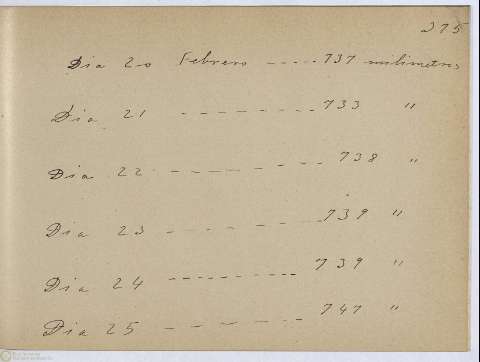 275
Dia 20 Febrero ----- 737 milimetros
Dia 21 -------- 733 "
Dia 22 ------- 738 "
Dia 23 ------- 739 "
Dia 24 --------- 739 "
Dia 25 ------ 747 "